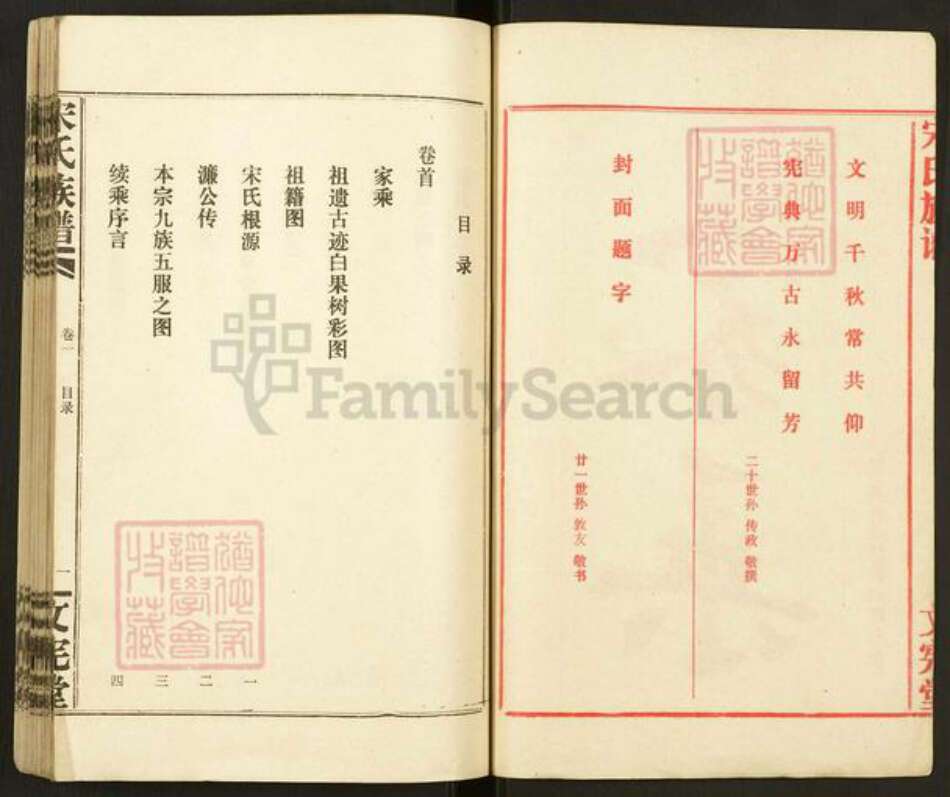 宋氏族谱
文明千秋常共仰
宪典万古永留芳
二十世孙 传政 敬撰
封面题字
廿一世孙 敦友 敬书
文宪堂
目录
卷首
家乘
祖遗古迹白果树彩图
祖籍图
宋氏根源 一
濂公传 二
本宗九族五服之图 三
续乘序言 四
宋氏族谱
卷一
目录
一
文宪堂
犹他家谱学会收藏
犹他家谱学会收藏
FamilySearch